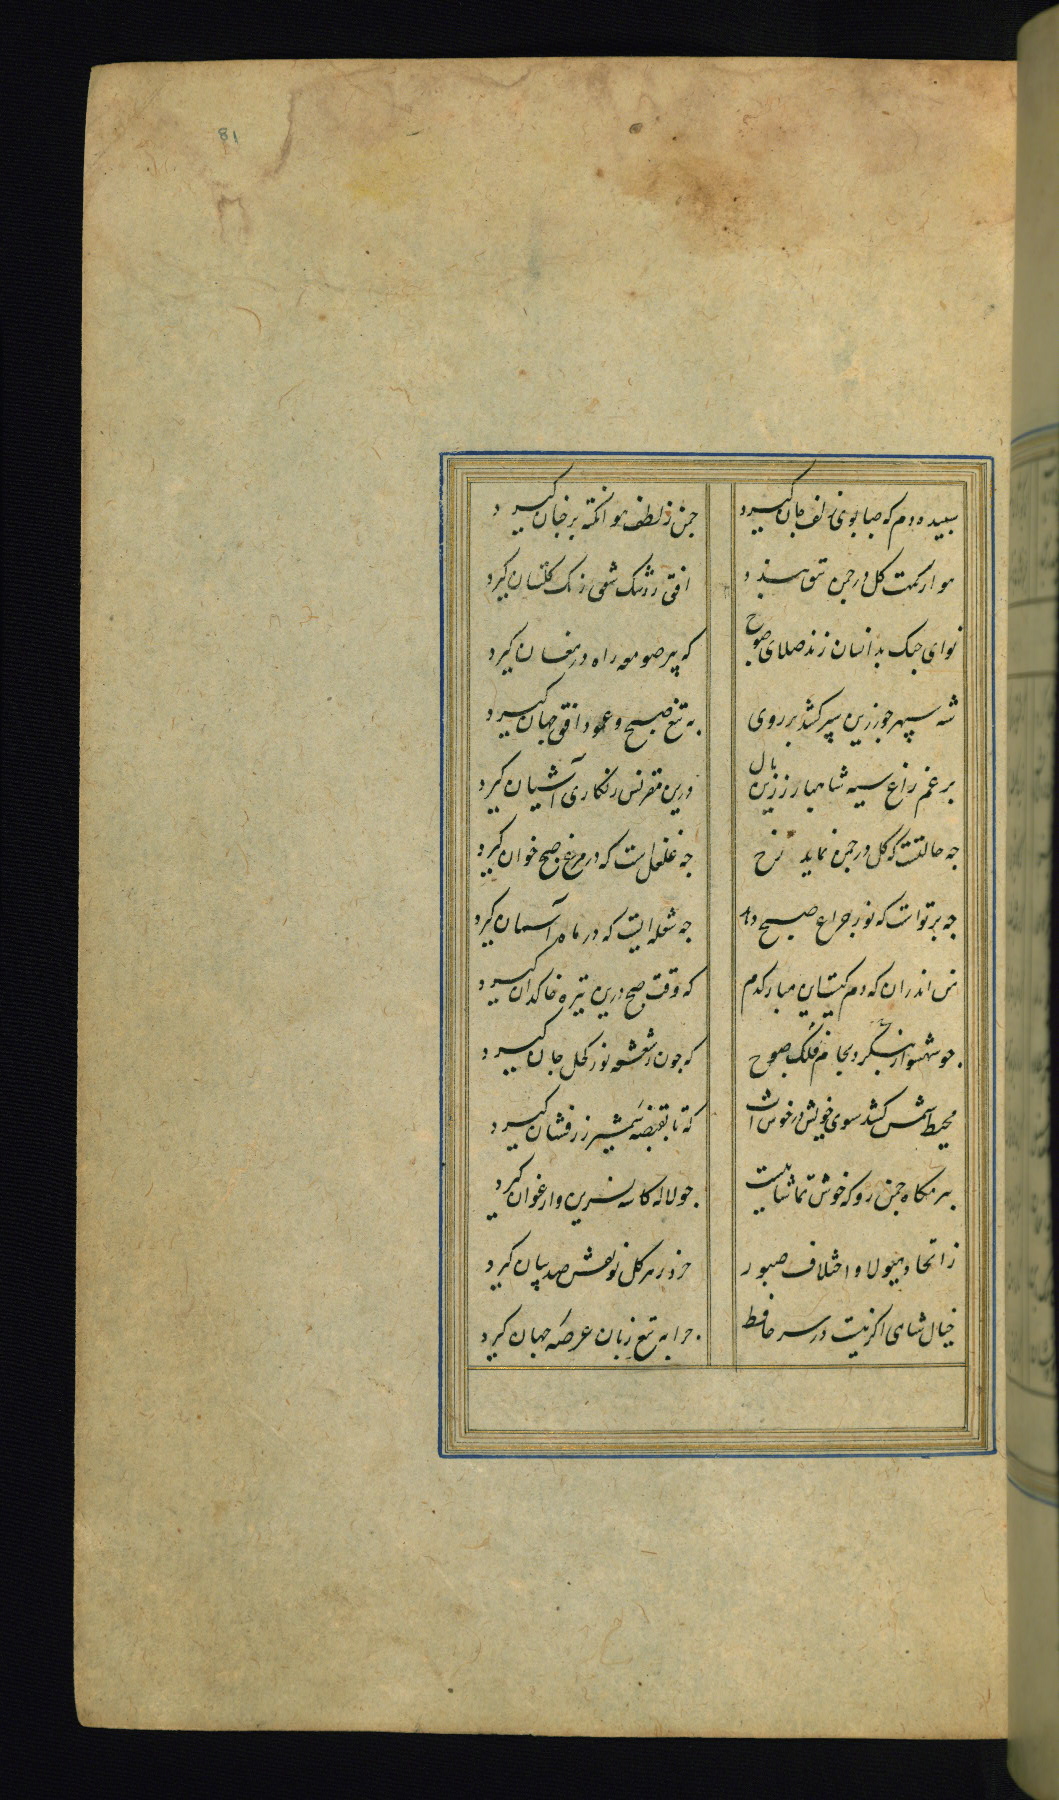 81
سپیده دم که صبا بوی زلف جان گیرد
چمن ز لطف هوا نکته بر جنان گیرد
هوا ز نکهت گل در چمن تتق بندد
افق ز رنگ شفق رنگ گلستان گیرد
نوای چنگ بدانسان زند صلای صبوح
که پیر صومعه راه در مغان گیرد
شه سپهر چو زرین سپر کشد بر روی
به تیغ صبح و عمود افق جهان گیرد
برغم زاغ سیه شاهباز زرین بال
درین مقرنس زنگاری آشیان گیرد
چه حالتست که گل در چمن نماید رخ
چه غلغل است که در مرغ صبح خوان گیرد
چه پرتو است که نور چراغ صبح دهد
چه شعله ایست که در ماه آسمان گیرد
که وقت صبح درین تیره خاکدان گیرد
چو شهسوار فلک بنگرد بجام صبوح
که چون بشعشعه نور کحل جان گیرد
محیط شمس کشد سوی خویش در خوشاب
که تا بقبضه شمشیر زرفشان گیرد
ببزمگاه چمن رو که خوش تماشاییست
چو لاله کاسه نسرین و ارغوان گیرد
ز اتحاد هیولا و اختلاف صور
خرد ز هر گل نو نقش صد بیان گیرد
خیال شاهی اگر نیست در سر حافظ
چرا به تیغ زبان عرصه جهان گیرد